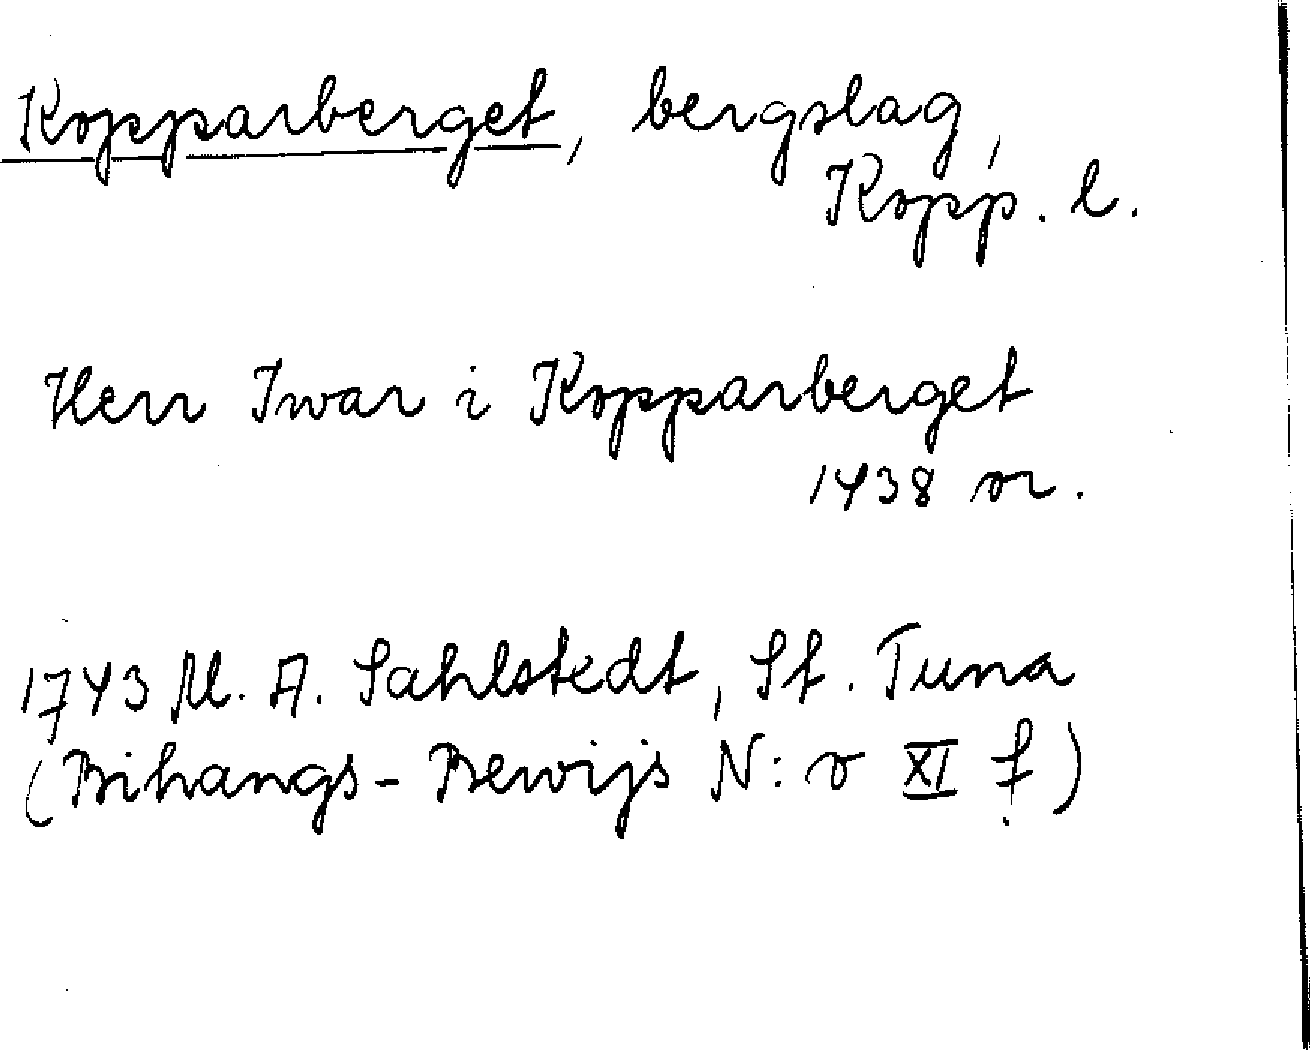 Kopparberget, bergslag,
Kopp. l.
Herr Iwar i Kopparberget
1438 or.
1743 M. A. Sahlstedt, St. Tuna
(Bihangs-Bewijs N:o XI f)